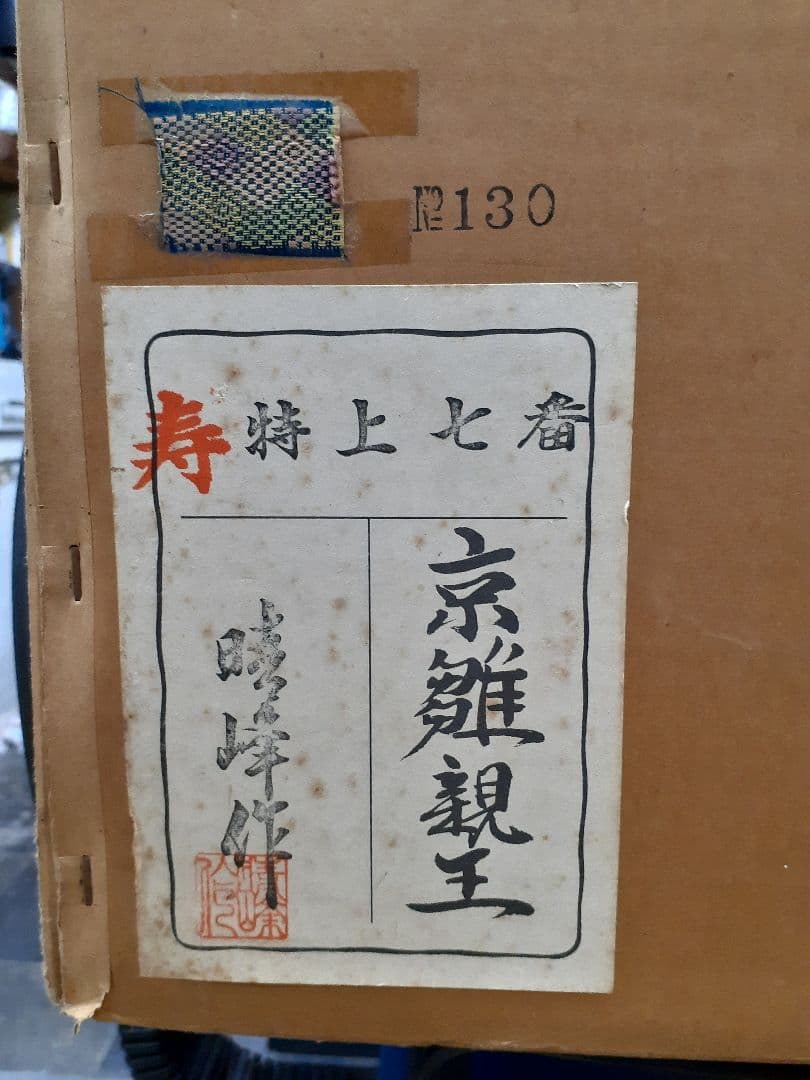 №130
寿 特上七番
京雛親王
暁峰作